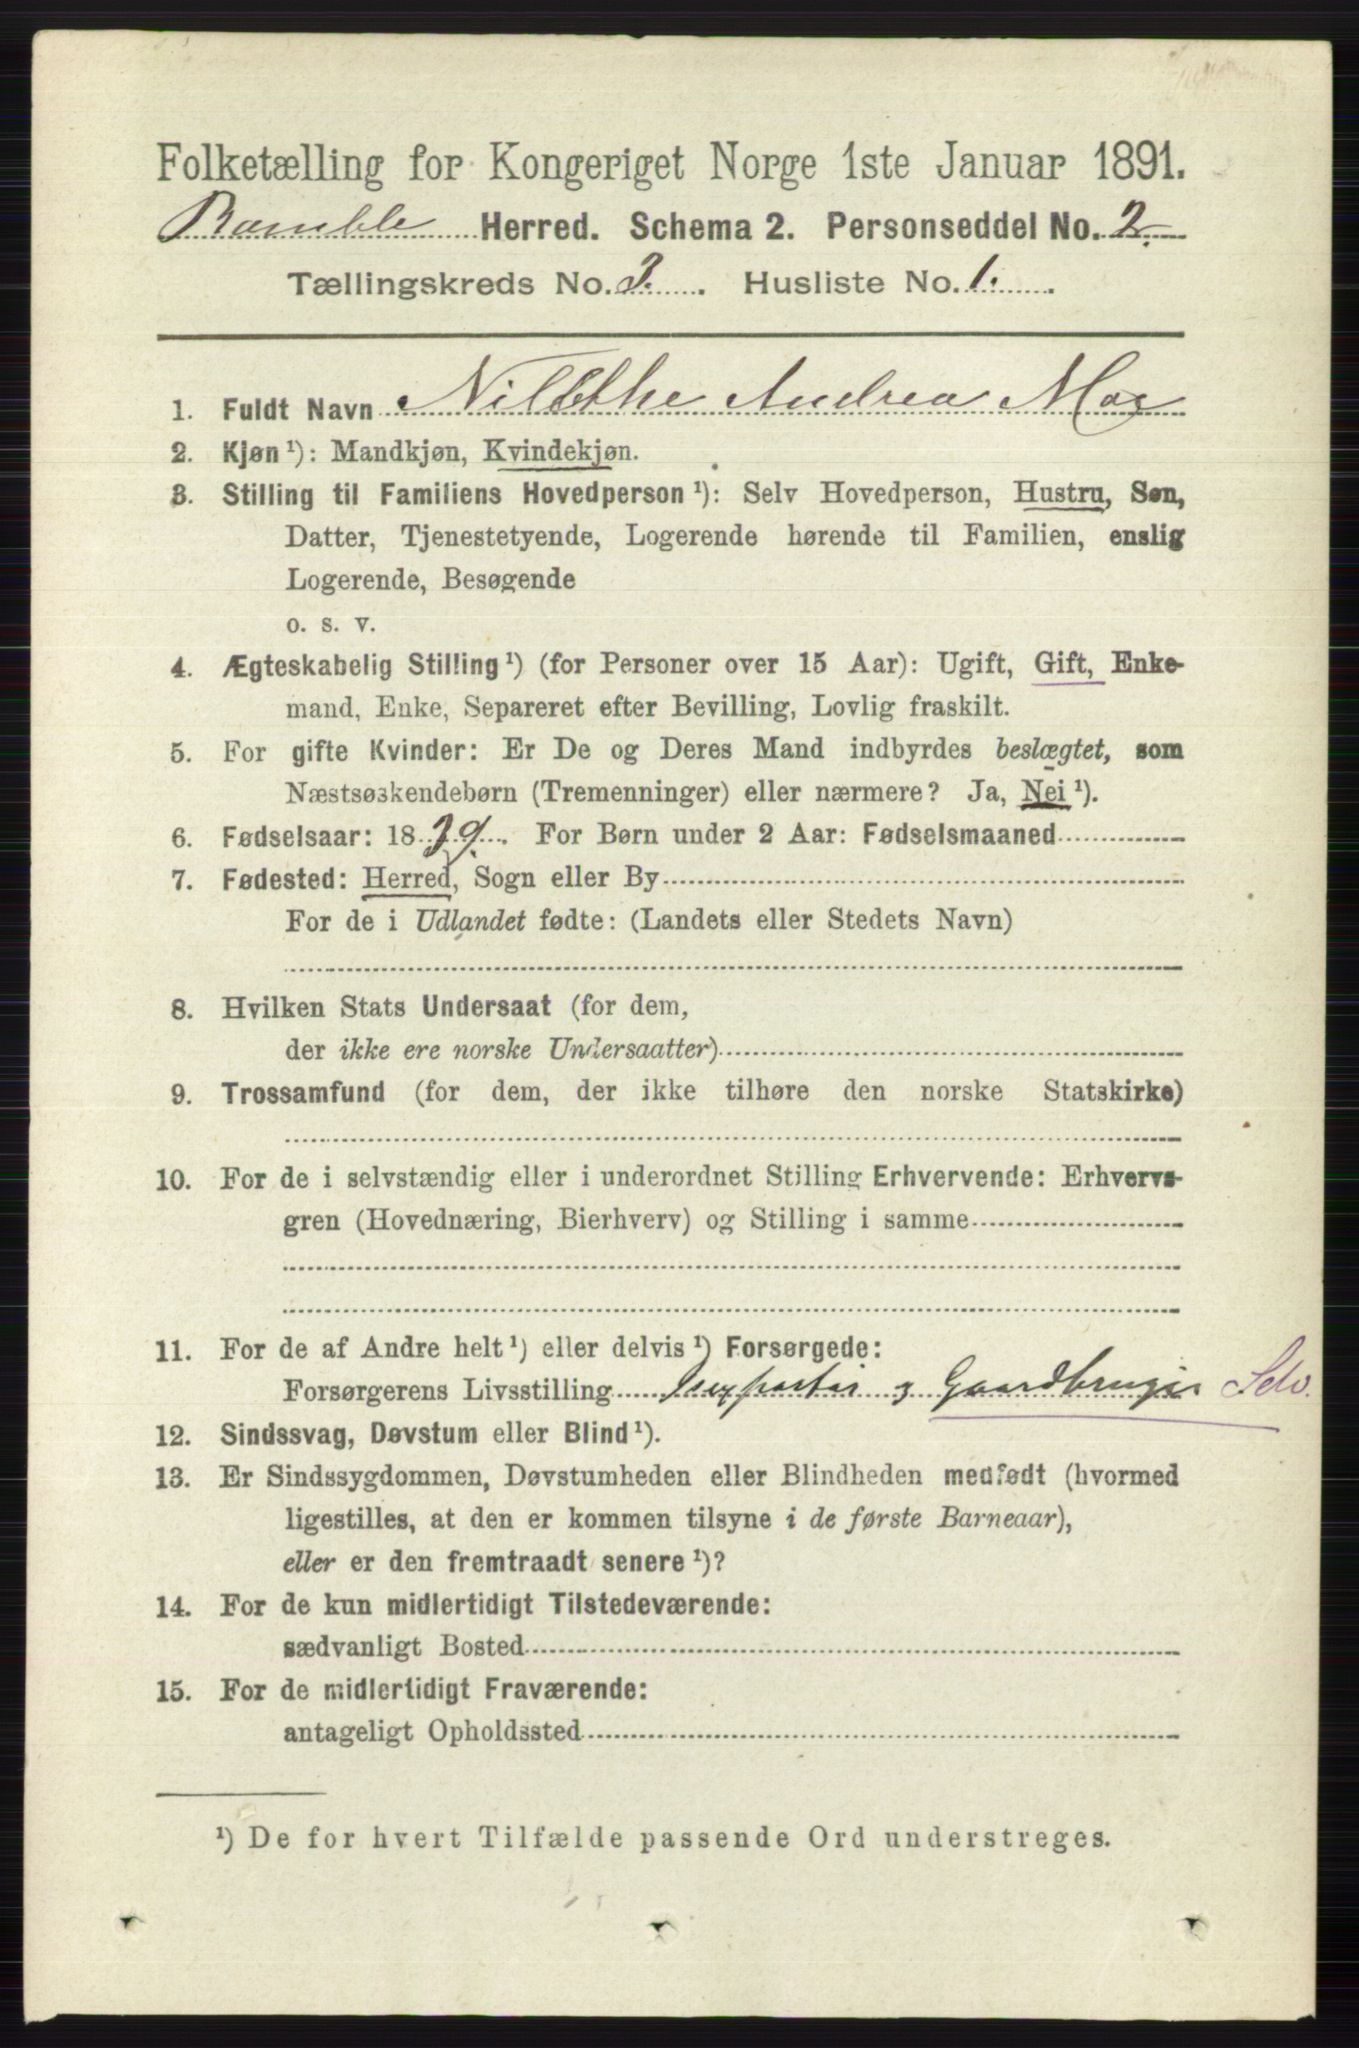 Folketælling for Kongeriget Norge 1ste Januar 1891.
Bamble Herred. Schema 2. Personseddel No. 2.
Tællingskreds No. 3. Husliste No. 1.
1. Fuldt Navn Andrea Moe
2. Kjøn ¹): Mandkjøn, Kvindekjøn.
3. Stilling til Familiens Hovedperson ¹): Selv Hovedperson, Hustru, Søn,
Datter, Tjenestetyende, Logerende hørende til Familien, enslig
Logerende, Besøgende
o. s. v.
4. Ægteskabelig Stilling ¹) (for Personer over 15 Aar): Ugift, Gift, Enke-
mand, Enke, Separeret efter Bevilling, Lovlig fraskilt.
5. For gifte Kvinder: Er De og Deres Mand indbyrdes beslægtet, som
Næstsøskendebørn (Tremenninger) eller nærmere? Ja, Nei ¹).
6. Fødselsaar: 1839. For Børn under 2 Aar: Fødselsmaaned
7. Fødested: Herred, Sogn eller By
For de i Udlandet fødte: (Landets eller Stedets Navn)
8. Hvilken Stats Undersaat (for dem,
der ikke ere norske Undersaatter)
9. Trossamfund (for dem, der ikke tilhøre den norske Statskirke)
10. For de i selvstændig eller i underordnet Stilling Erhvervende: Erhvervs-
gren (Hovednæring, Bierhverv) og Stilling i samme
11. For de af Andre helt ¹) eller delvis ¹) Forsørgede:
Forsørgerens Livsstilling Gaardbruger Selv.
12. Sindssvag, Døvstum eller Blind ¹).
13. Er Sindssygdommen, Døvstumheden eller Blindheden medfødt (hvormed
ligestilles, at den er kommen tilsyne i de første Barneaar),
eller er den fremtraadt senere ¹)?
14. For de kun midlertidigt Tilstedeværende:
sædvanligt Bosted
15. For de midlertidigt Fraværende:
antageligt Opholdssted
¹) De for hvert Tilfælde passende Ord understreges.